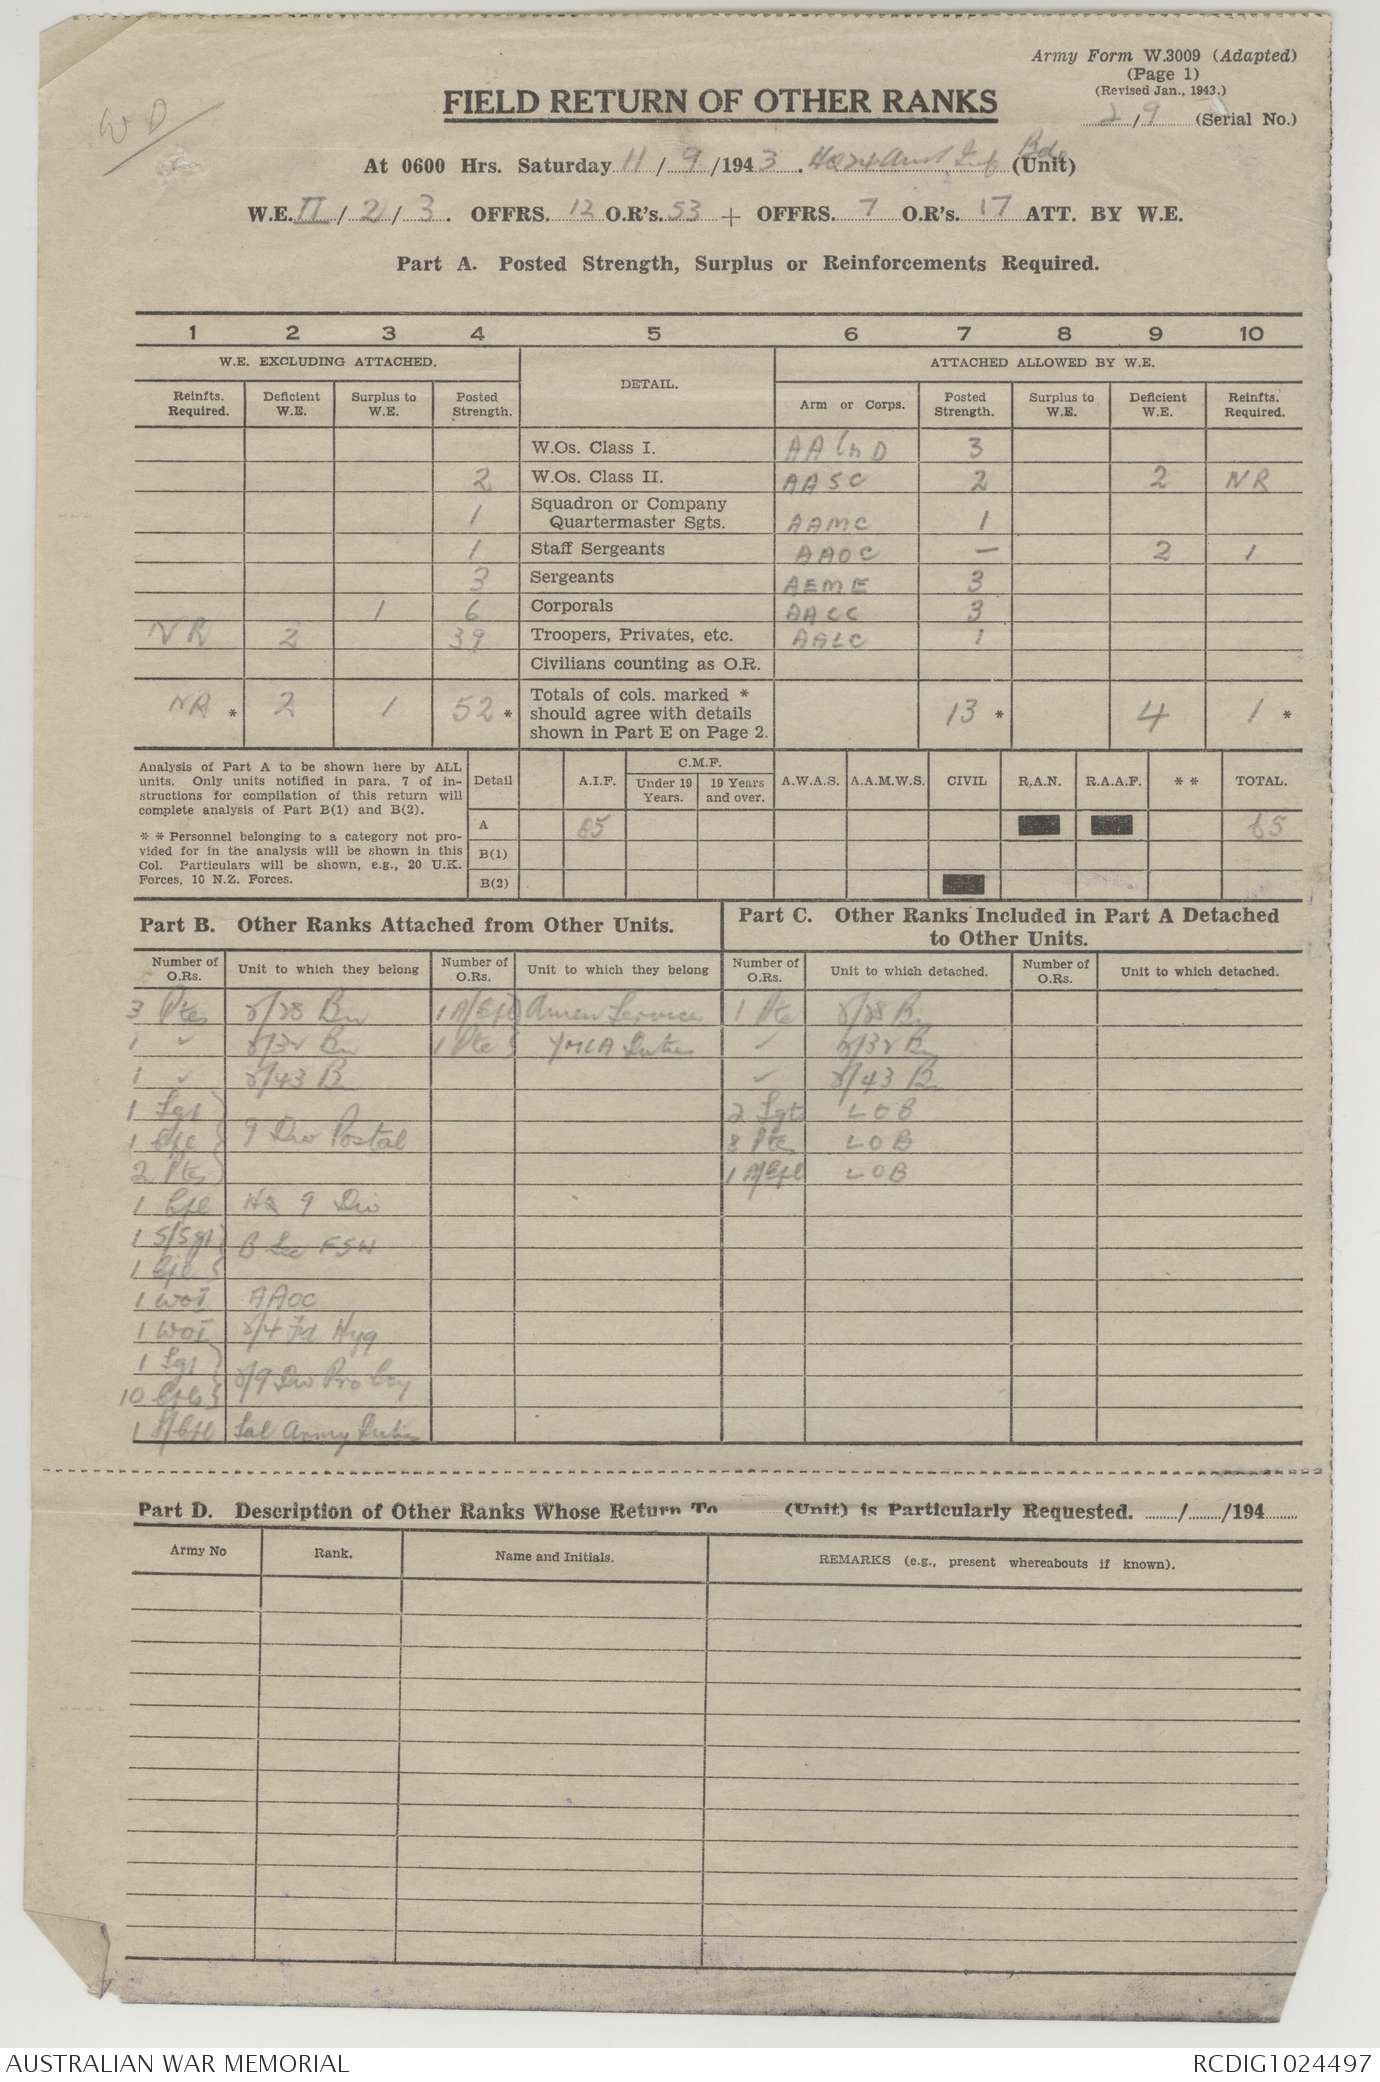 Army Form W.3009 (Adapted)
(Page 1)
(Revised Jan., 1943.)
2/9 (Serial No.)
WD
FIELD RETURN OF OTHER RANKS
At 0600 Hrs. Saturday 11/9/1943. HQ 24 Aust Inf Bde (Unit)
W.E. II/2/3. OFFRS. 12 O.R's. 53 + OFFRS. 7 O.R's. 17 ATT. BY W.E.
Part A. Posted Strength, Surplus or Reinforcements Required.
1 2 3 4 5 6 7 8 9 10
W.E. EXCLUDING ATTACHED. DETAIL. ATTACHED ALLOWED BY W.E.
Reinfts. Required. Deficient W.E. Surplus to W.E. Posted Strength. Arm or Corps. Posted Strength. Surplus to W.E. Deficient W.E. Reinfts. Required.
W.Os. Class I. 3
2 W.Os. Class II. AASC 2 2 NR
1 Squadron or Company Quartermaster Sgts. AAMC 1
1 Staff Sergeants AAOC — 2 1
3 Sergeants AEME 3
1 6 Corporals AACC 3
NR 2 39 Troopers, Privates, etc. AALC 1
Civilians counting as O.R.
NR * 2 1 52 * Totals of cols. marked * should agree with details shown in Part E on Page 2. 13 * 4 1 *
Analysis of Part A to be shown here by ALL
units. Only units notified in para. 7 of in-
structions for compilation of this return will
complete analysis of Part B(1) and B(2).
* * Personnel belonging to a category not pro-
vided for in the analysis will be shown in this
Col. Particulars will be shown, e.g., 20 U.K.
Forces, 10 N.Z. Forces.
Detail A.I.F. C.M.F. Under 19 Years. 19 Years and over. A.W.A.S. A.A.M.W.S. CIVIL R.A.N. R.A.A.F. * * TOTAL.
A 65 65
B(1)
B(2)
Part B. Other Ranks Attached from Other Units.
Part C. Other Ranks Included in Part A Detached
to Other Units.
Number of O.Rs. Unit to which they belong Number of O.Rs. Unit to which they belong Number of O.Rs. Unit to which detached. Number of O.Rs. Unit to which detached.
3 Ptes 2/28 Bn 1 A/Cpl Amen Service 1 Pte 2/28 Bn
1 " 2/32 Bn 1 Pte YMCA Duties " 2/32 Bn
1 " 2/43 Bn " 2/43 Bn
1 Sgt 2 Sgts LOB
1 Cpl 9 Div Postal 8 Ptes LOB
2 Ptes 1 A/Cpl LOB
1 Cpl HQ 9 Div
1 S/Sgt B Sec FSW
1 Cpl
1 WOI AAOC
1 WOI 2/4 Fd Hyg
1 Sgt
10 Cpls 9 Div Pro Coy
1 A/Cpl Sal Army Duties
Part D. Description of Other Ranks Whose Return To (Unit) is Particularly Requested. ....../....../194......
Army No Rank. Name and Initials. REMARKS (e.g., present whereabouts if known).
AUSTRALIAN WAR MEMORIAL RCDIG1024497